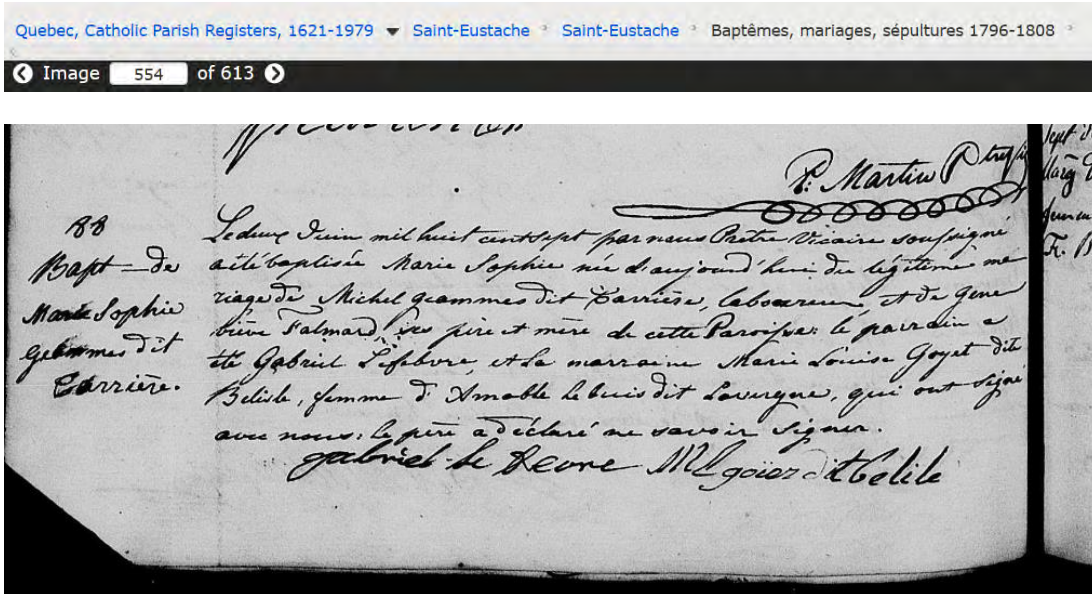 Quebec, Catholic Parish Registers, 1621-1979 Saint-Eustache Saint-Eustache Baptêmes, mariages, sépultures 1796-1808
Image 554 of 613
P. Martin Ptre
88
Bapt — de
Marie Sophie
Geammes dit
Carrière.
Ledeux Juin mil huit cent sept par nous Prêtre Vicaire soussigné
a été baptisée Marie Sophie née d'aujourd'hui du légitime ma
riage de Michel Geammes dit Carrière, laboureur et de Gene
biève Talmard ses père et mère de cette Paroisse: le parrain a
été Gabriel Lefebvre, et la marraine Marie Louise Goyet dite
Belisle, femme d'Amable Lebuis dit Lavergne, qui ont signé
avec nous: le père a déclaré ne savoir signer.
gabriel le fevre ML goier dit belile